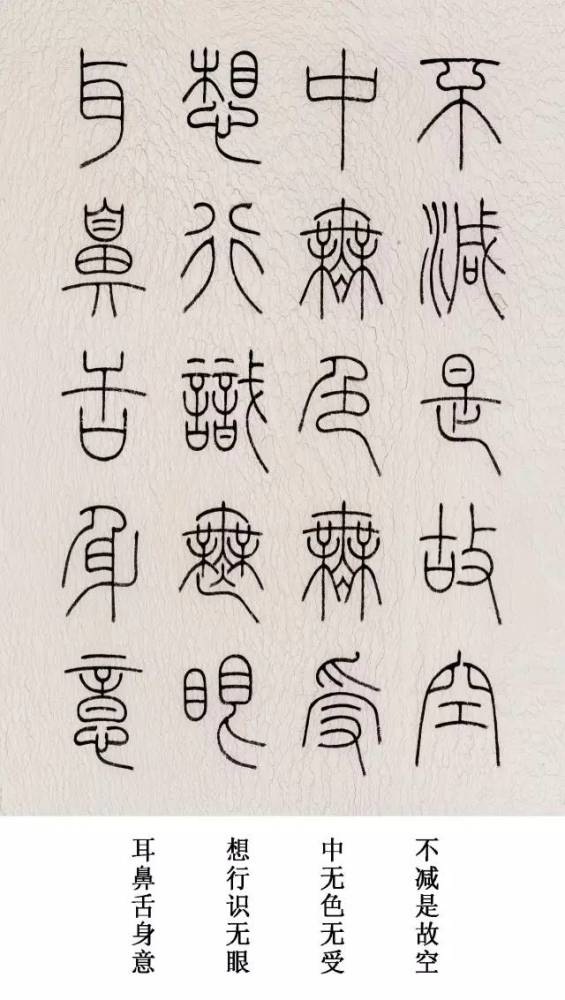 不減是故空
中無色無受
想行識無眼
耳鼻舌身意
不减是故空
中无色无受
想行识无眼
耳鼻舌身意